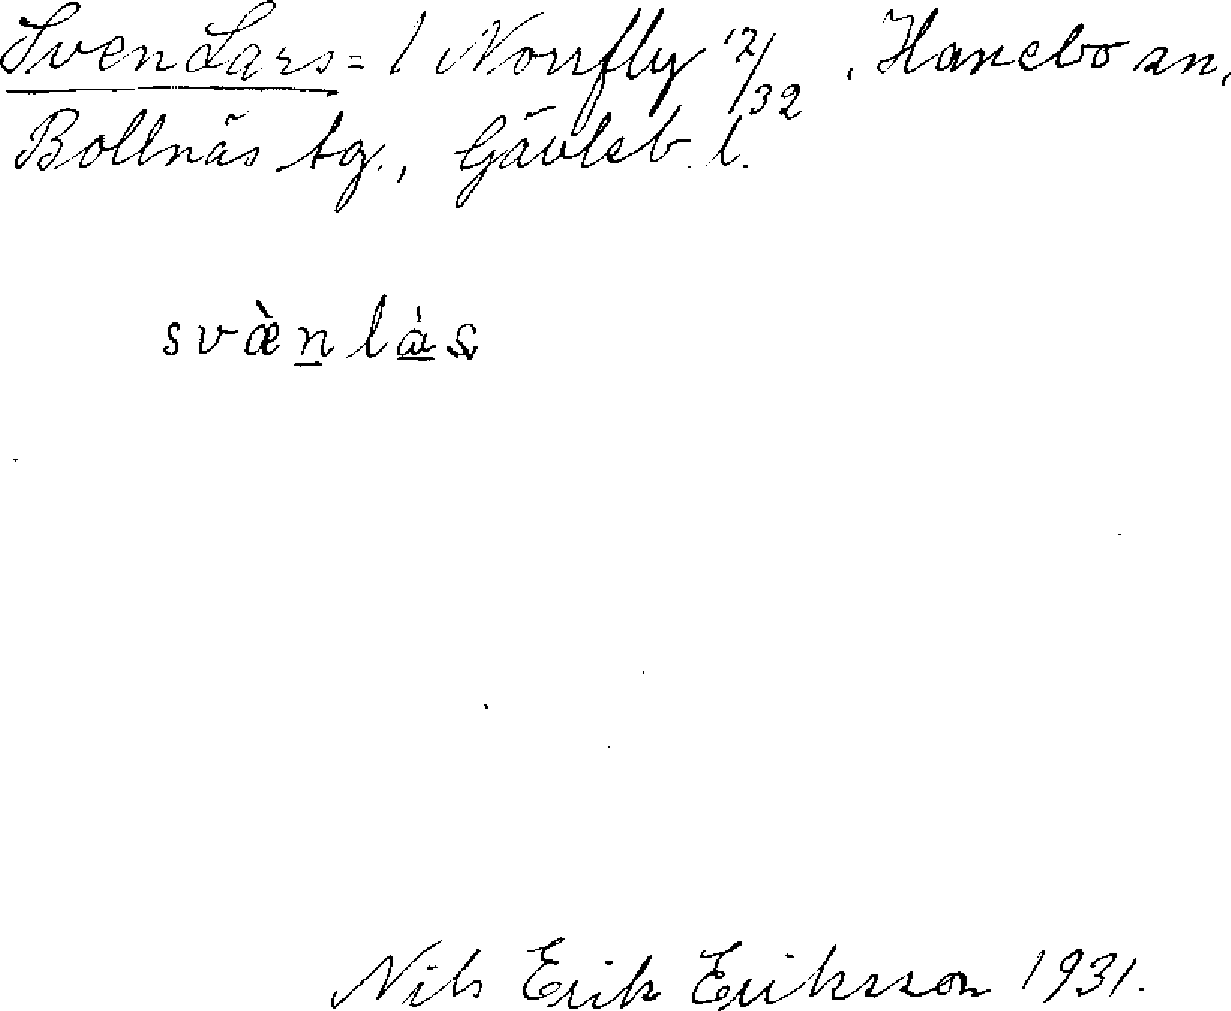 Sven Lars = / Norrfly 12/32, Hanebo sn,
Bollnäs tg., Gävleb. l.
svæ̀n̲là̲s
Nils Erik Eriksson 1931.